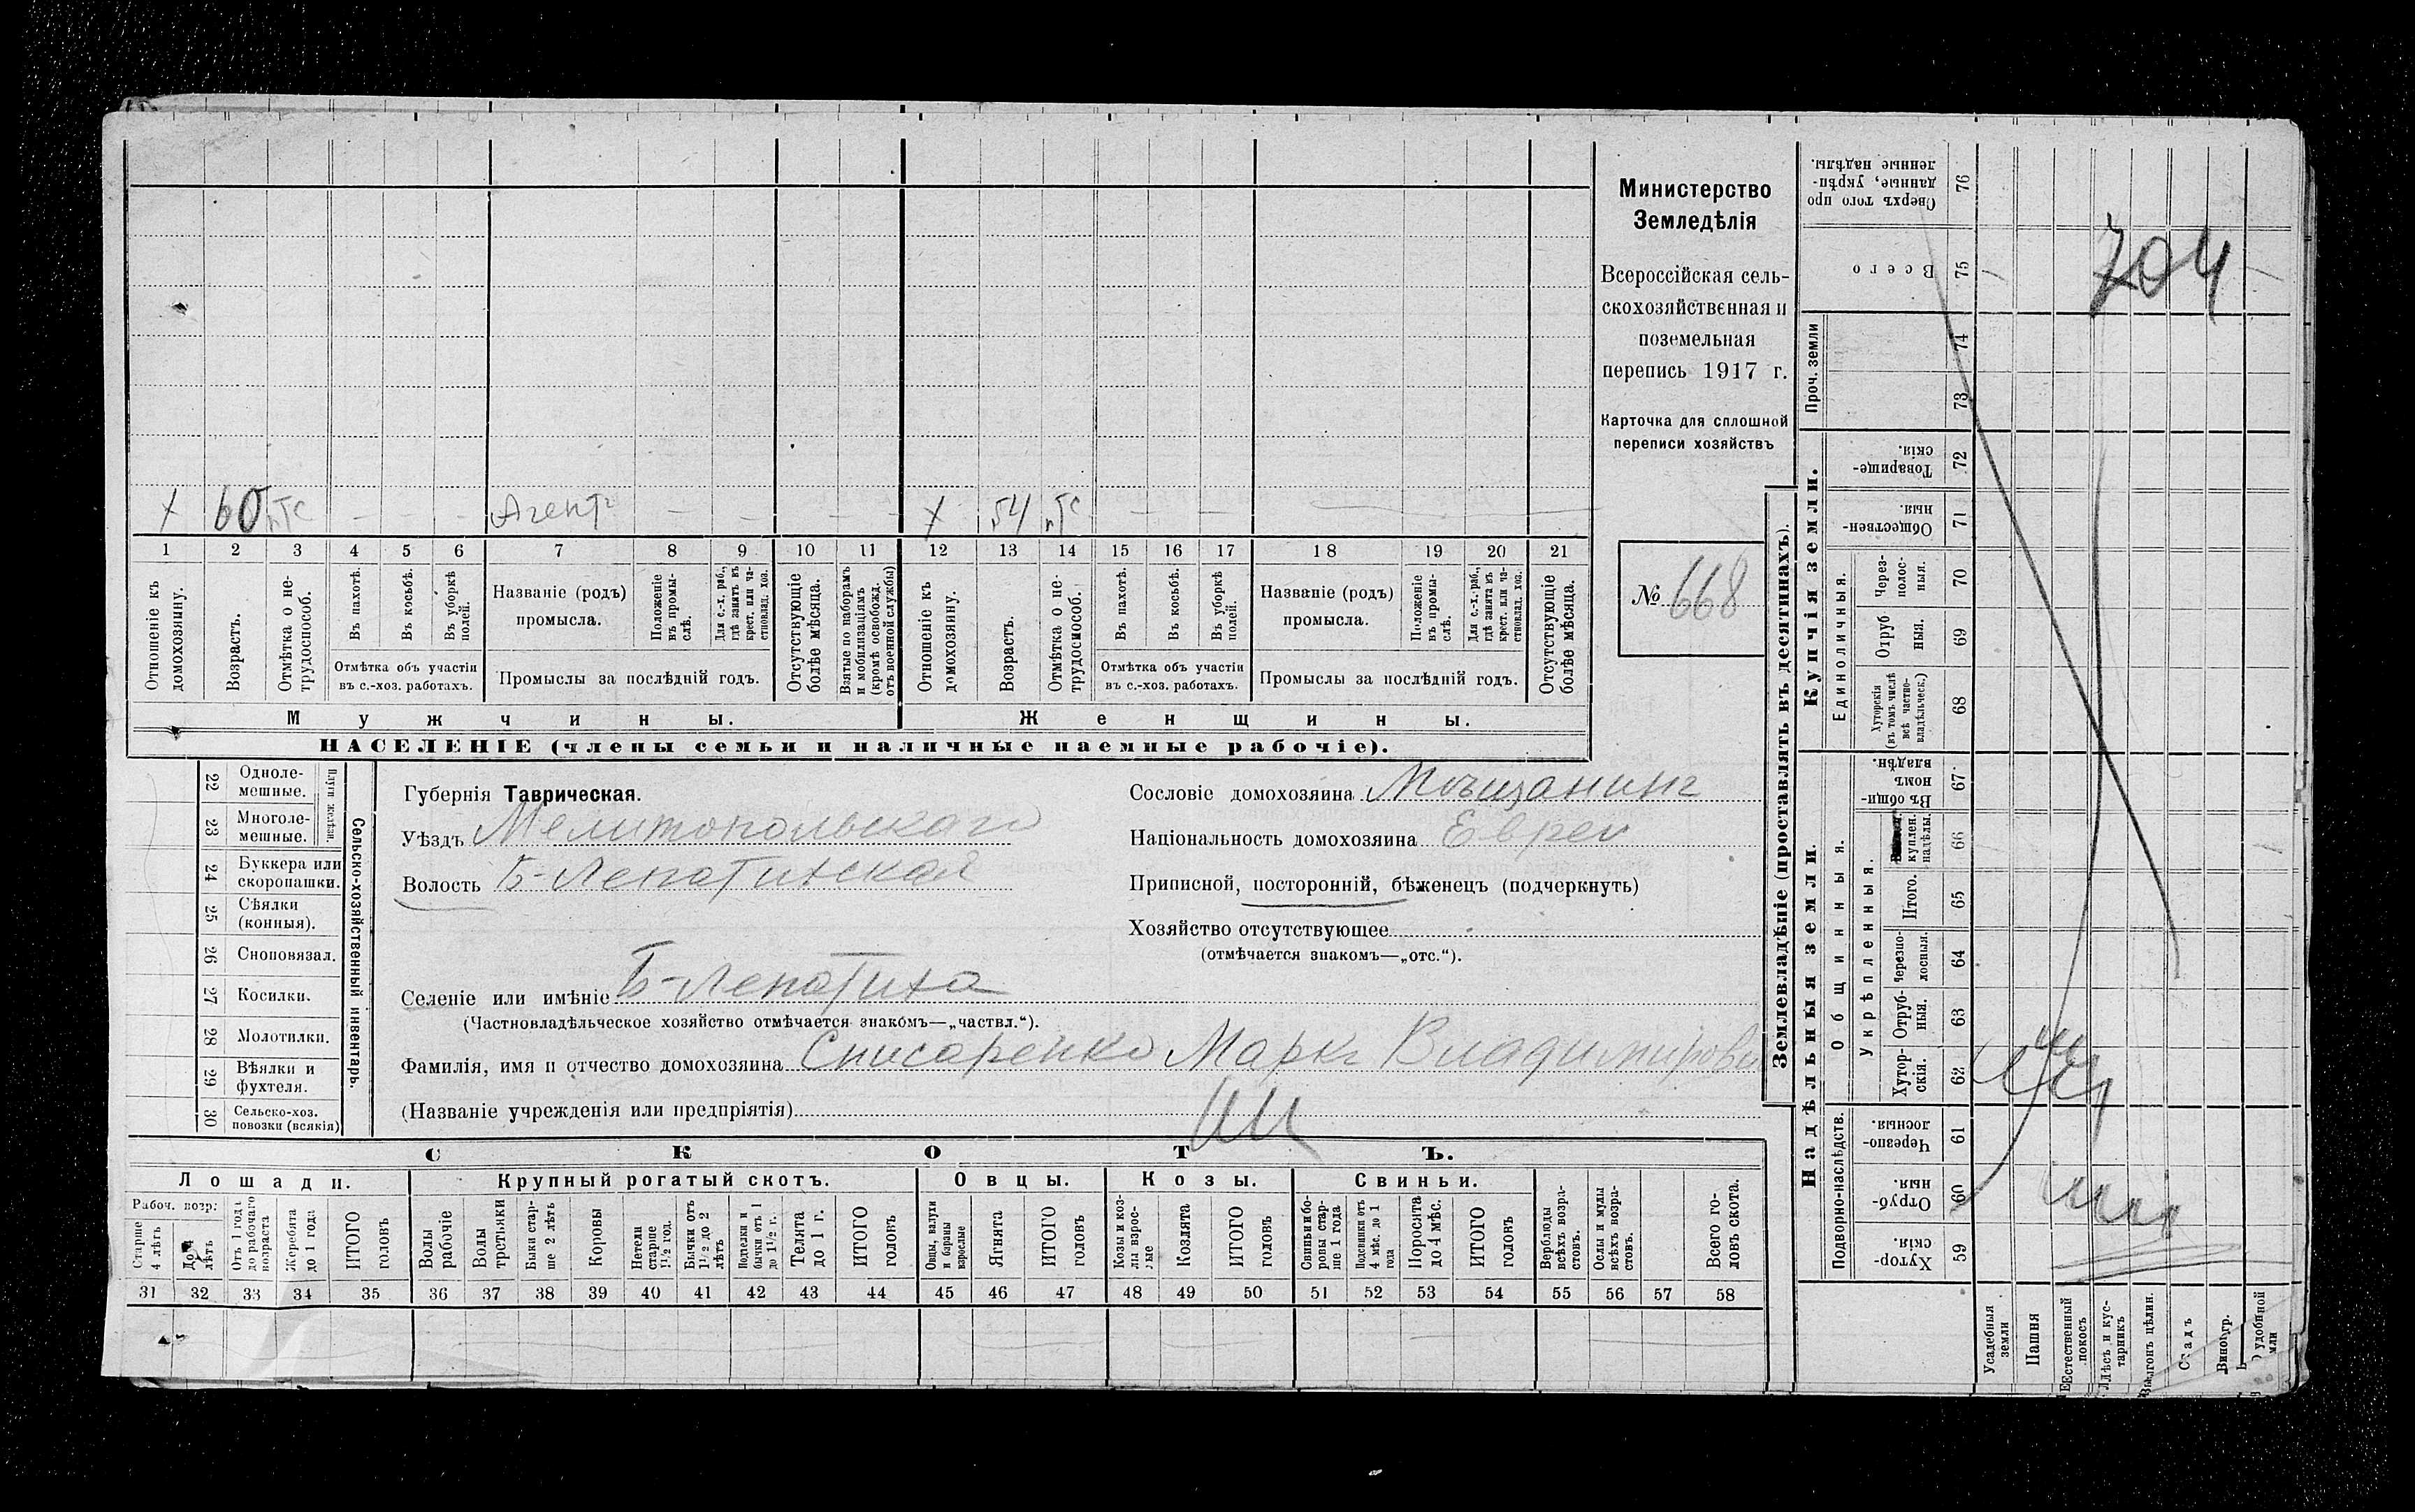 Министерство
Земледѣлія
Всероссійская сель-
скохозяйственная и
поземельная
перепись 1917 г.
Карточка для сплошной
переписи хозяйствъ
№ 668
X 60 Агентъ X 54
1 2 3 4 5 6 7 8 9 10 11 12 13 14 15 16 17 18 19 20 21
Отношеніе къ домохозяину.
Возрастъ.
Отмѣтка о не-трудоспособ.
Въ пахотѣ.
Въ косьбѣ.
Въ уборкѣ полей.
Отмѣтка объ участіи
въ с.-хоз. работахъ.
Названіе (родъ)
промысла.
Положеніе въ промы-слѣ.
Для с.-х. раб., гдѣ занятъ въ крест. или ча-стновлад. хоз.
Промыслы за послѣдній годъ.
Отсутствующіе болѣе мѣсяца.
Взятые по наборамъ и мобилизаціямъ (кромѣ освобожд. отъ военной службы)
Отношеніе къ домохозяину.
Возрастъ.
Отмѣтка о не-трудоспособ.
Въ пахотѣ.
Въ косьбѣ.
Въ уборкѣ полей.
Отмѣтка объ участіи
въ с.-хоз. работахъ.
Названіе (родъ)
промысла.
Положеніе въ промы-слѣ.
Для с.-х. раб., гдѣ занята въ крест. или ча-стновлад. хоз.
Промыслы за послѣдній годъ.
Отсутствующіе болѣе мѣсяца.
Мужчины. Женщины.
НАСЕЛЕНІЕ (члены семьи и наличные наемные рабочіе).
22 Одноле-мешные.
23 Многоле-мешные.
24 Буккера или скоропашки.
25 Сѣялки (конныя).
26 Сноповязал.
27 Косилки.
28 Молотилки.
29 Вѣялки и фухтеля.
30 Сельско-хоз. повозки (всякія)
Сельско-хозяйственный инвентарь.
Губернія Таврическая.
Уѣздъ Мелитопольскаго
Волость Б-Лепатихская
Селеніе или имѣніе Б-Лепатиха
(Частновладѣльческое хозяйство отмѣчается знакомъ—„частвл.“).
Фамилія, имя и отчество домохозяина Списаренко Маркъ Владимирови
(Названіе учрежденія или предпріятія)
Сословіе домохозяина Мѣщанинъ
Національность домохозяина Еврей
Приписной, посторонній, бѣженецъ (подчеркнуть)
Хозяйство отсутствующее
(отмѣчается знакомъ—„отс.“).
СКОТЪ.
Лошади. Крупный рогатый скотъ. Овцы. Козы. Свиньи.
Рабоч. возр.
Старше 4 лѣтъ
До 4 лѣтъ
Отъ 1 года до рабочаго возраста
Жеребята до 1 года
ИТОГО головъ
Волы рабочіе
Волы третьяки
Быки стар-ше 2 лѣтъ
Коровы
Нетели старше 1½ год.
Бычки отъ 1½ до 2 лѣтъ
Подтелки и бычки отъ 1 до 1½ г.
Телята до 1 г.
ИТОГО головъ
Овцы, валухи и бараны взрослые
Ягнята
ИТОГО головъ
Козы и коз-лы взрос-лые
Козлята
ИТОГО головъ
Свиньи и бо-ровы стар-ше 1 года
Подсвинки отъ 4 мѣс. до 1 года
Поросята до 4 мѣс.
ИТОГО головъ
Верблюды всѣхъ возра-стовъ.
Ослы и мулы всѣхъ возра-стовъ.
Всего го-ловъ скота.
31 32 33 34 35 36 37 38 39 40 41 42 43 44 45 46 47 48 49 50 51 52 53 54 55 56 57 58
Землевладѣніе (проставлять въ десятинахъ).
Надѣльныя земли. Купчія земли. Проч. земли
Подворно-наслѣдств. Общинныя. Укрѣпленныя. Единоличныя.
76 Сверхъ того про данные, укрѣп-ленные надѣлы.
75 Всего
74
73
72 Товарище-скія.
71 Обществен-ныя.
70 Через-полос-ныя.
69 Отруб ныя.
68 Хуторскія (въ томъ числѣ всѣ частно-владѣльческ.)
67 Въ общи-номъ владѣн.
66 куплен. надѣлы.
65 Итого.
64 Черезпо-лосныя.
63 Отруб-ныя.
62 Хутор-скія.
61 Черезпо-лосныя.
60 Отруб-ныя.
59 Хутор-скія.
704
Усадебныя земли
Пашня
Естественный покосъ
Лѣсъ и кус-тарникъ
Выгонъ цѣлин.
Садъ
Виногр.